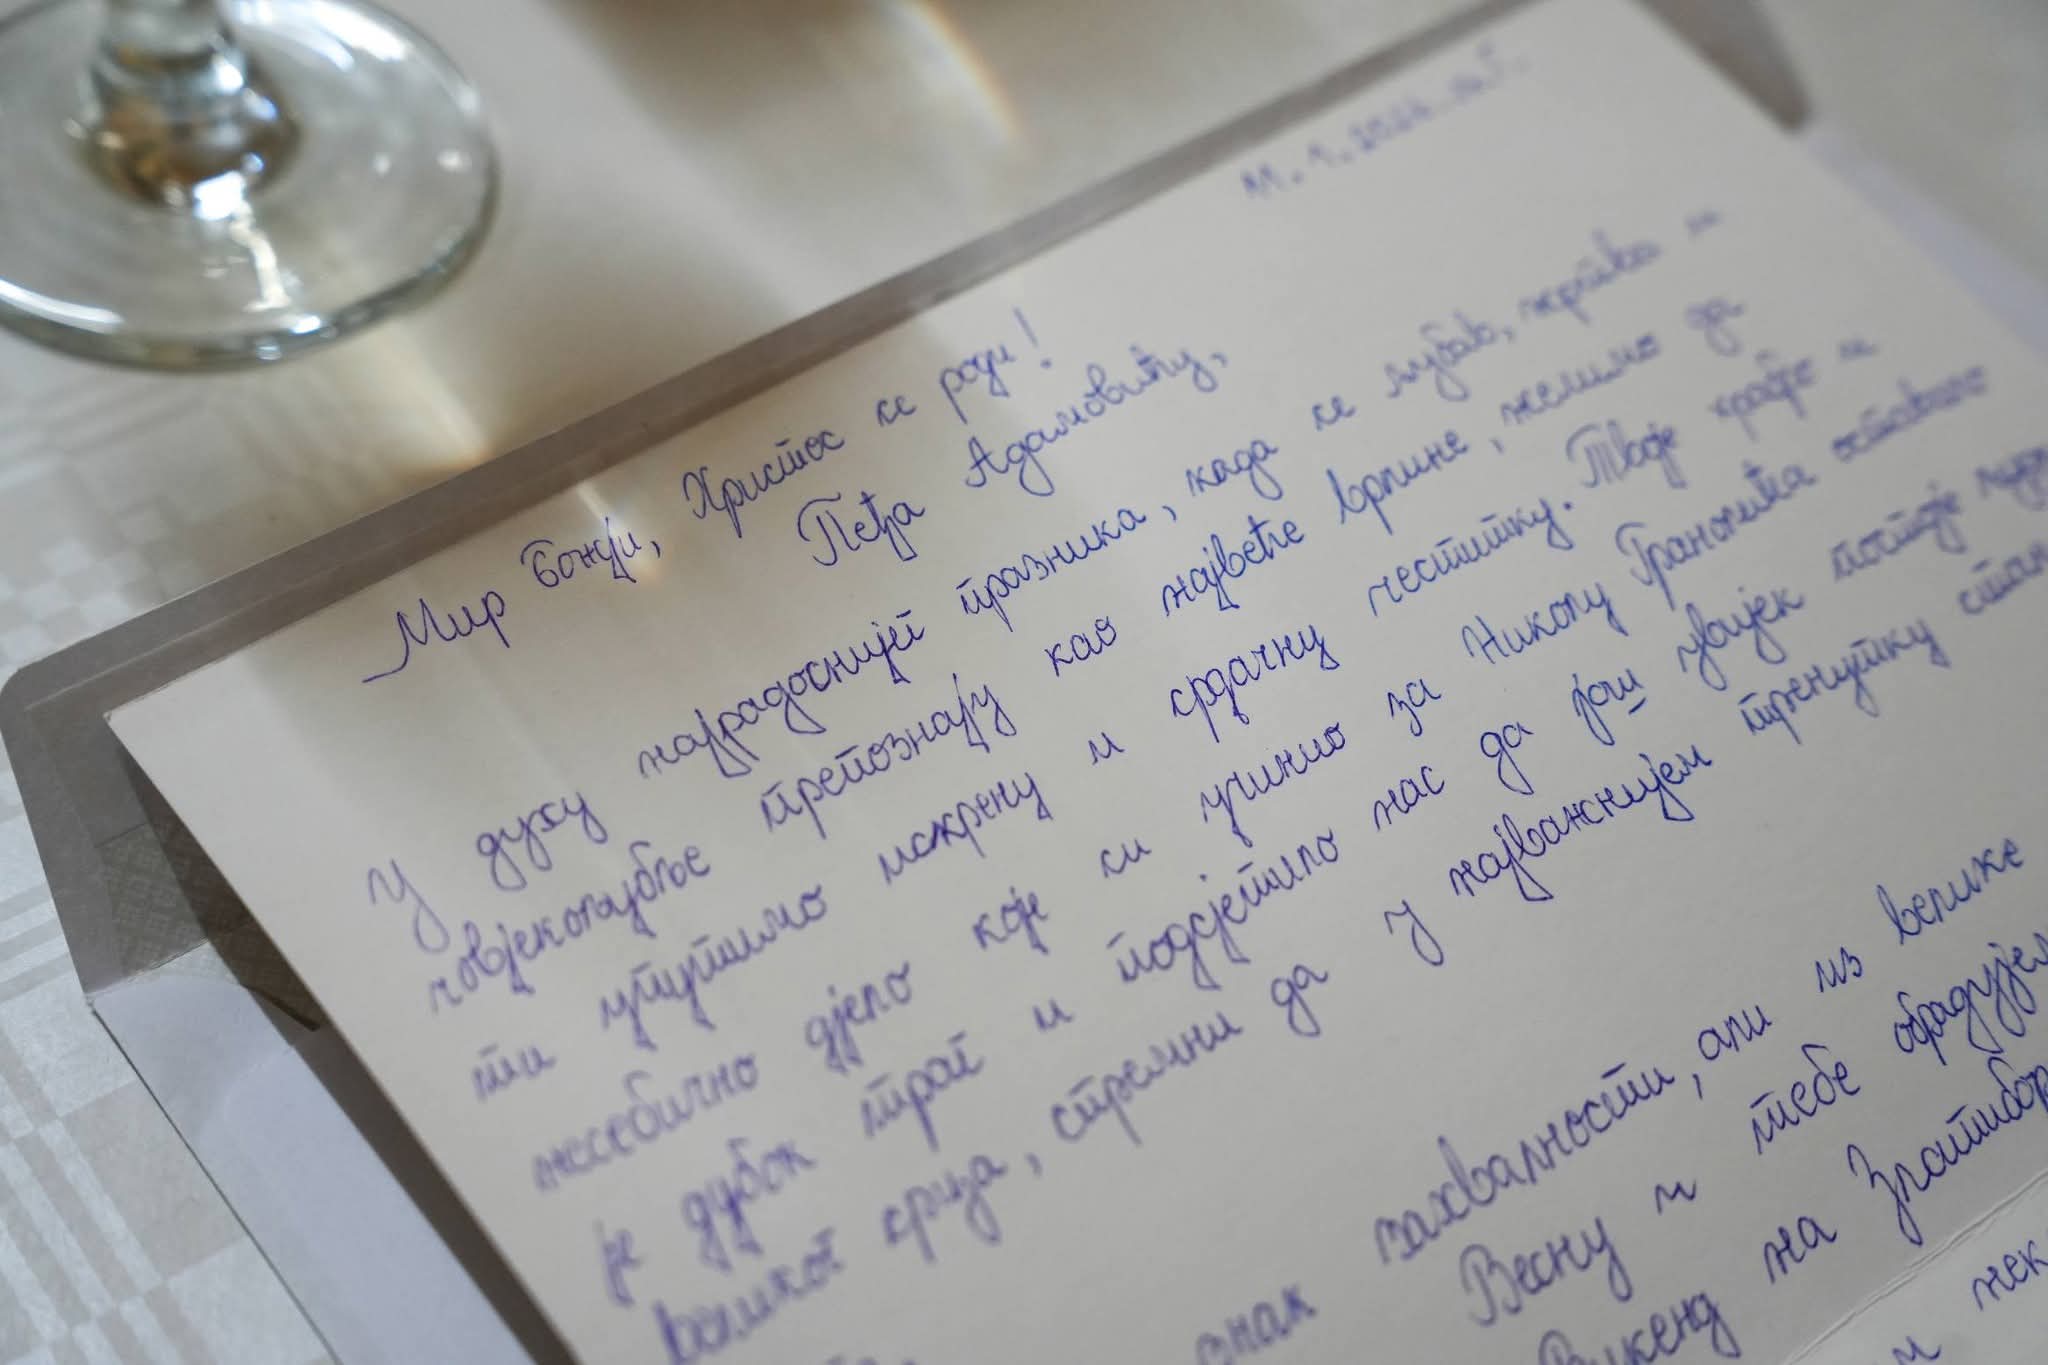 Мир Божји, Христос се роди!
Пеђа Адамовићу,
У духу најрадоснијег празника, када се љубав, жртва и
човјекољубље препознају као највеће врлине, желимо да
ти упутимо искрену и срдачну честитку. Твоје храбро и
несебично дјело које си учинио за Николу Грančића оставило
је дубок траг и подсјетило нас да још увијек постоје људи
великог срца, спремни да у најважнијем тренутку
знак захвалности, али из велике
Весну и тебе обрадујемо
Викенд на Златибор
и нек